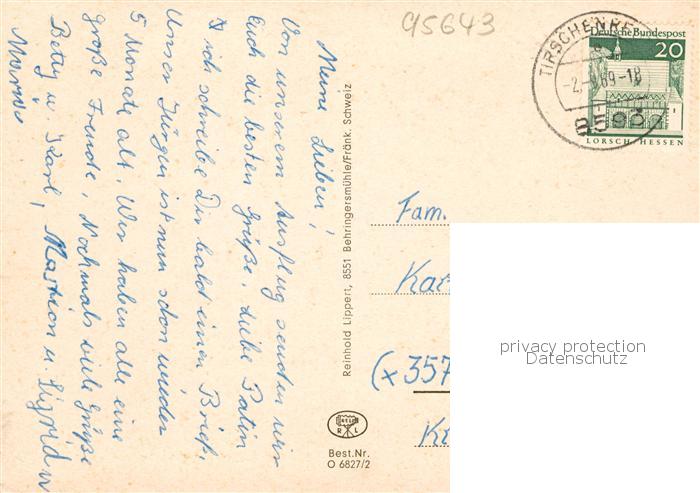 95643
TIRSCHENRE
-2.-69-18
8593
Deutsche Bundespost
20
LORSCH HESSEN
Meine Lieben!
Von unserem Ausflug senden wir
Euch die besten Grüße. Liebe Patin
ich schreibe Dir bald einen Brief.
Unser Jürgen ist nun schon wieder
5 Monate alt. Wir haben alle eine
große Freude. Nochmals viele Grüße
Betty u. Karl, u. Sigrid u
Reinhold Lippert, 8551 Behringersmühle/Fränk. Schweiz
Fam.
Kar
(x357
K
RELI
R L
Best.Nr.
O 6827/2
privacy protection
Datenschutz